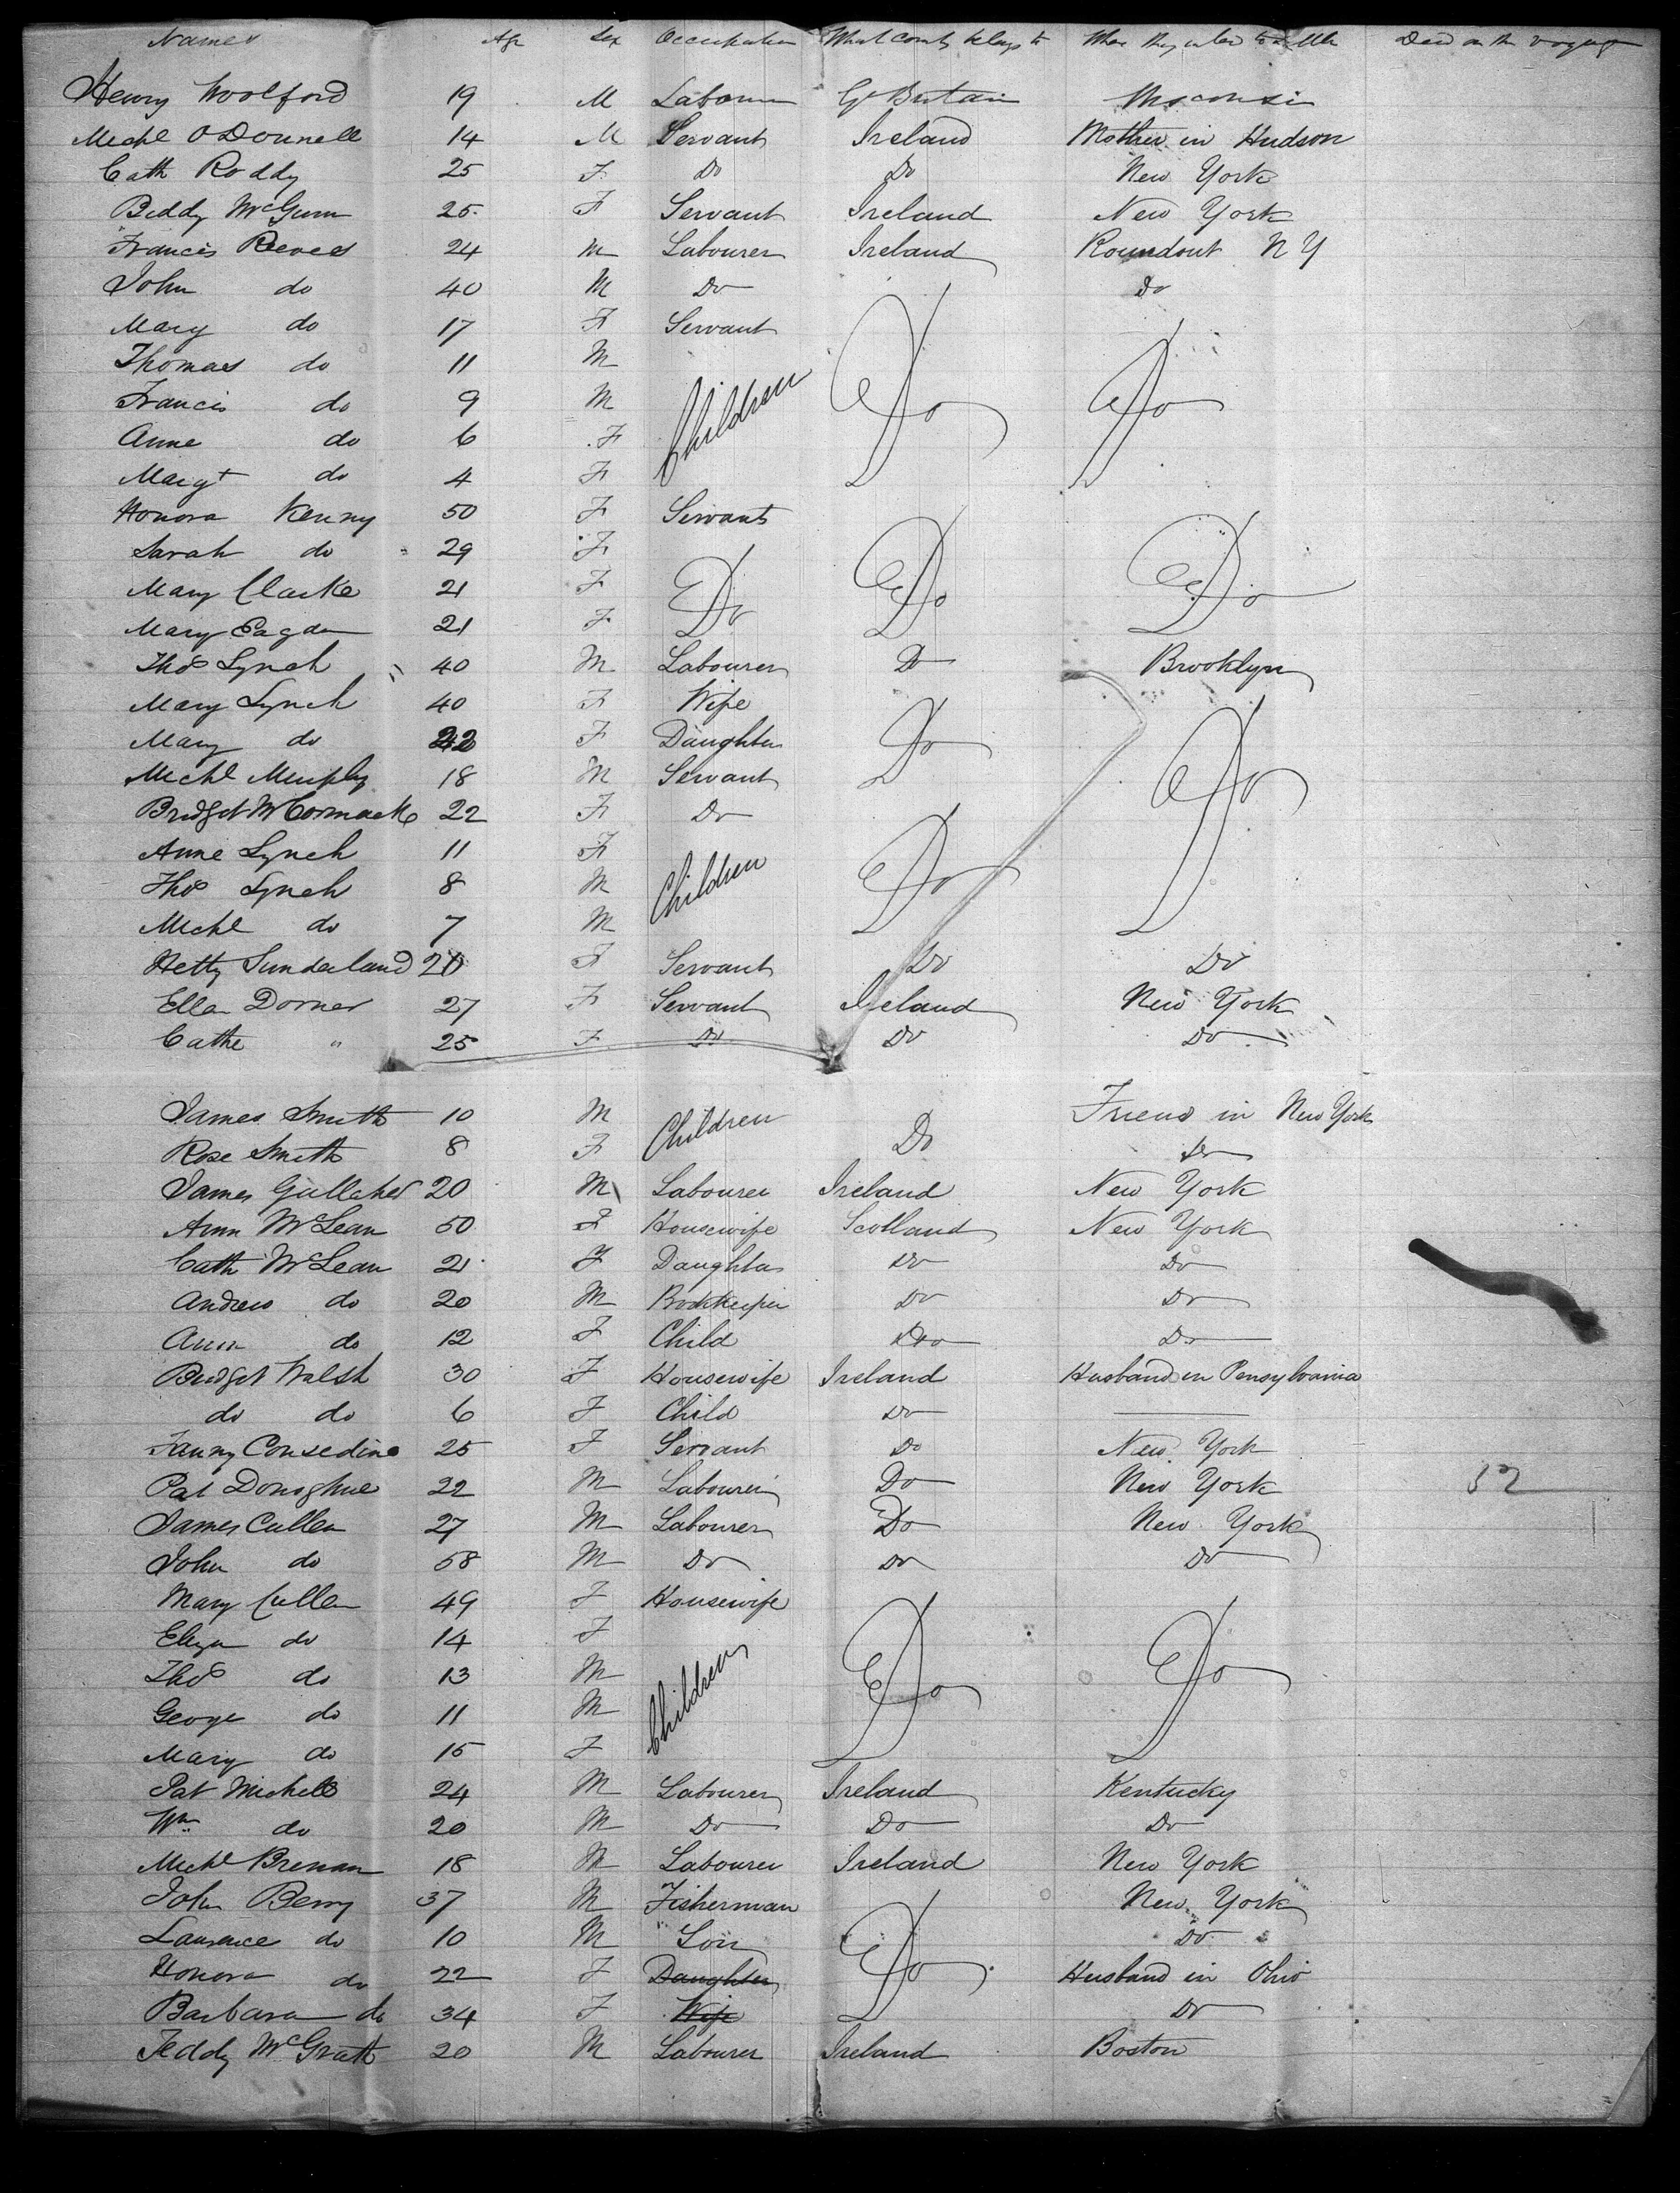 Names Age Sex Occupation What country belongs to Where they intend to settle Died on the voyage
Henry Woolford 19 M Labourer Gt Britain Wisconsin
Michl O'Donnell 14 M Servant Ireland Mother in Hudson
Cath Roddy 25 F Do Do New York
Biddy McGurn 25 F Servant Ireland New York
Francis Reeves 24 M Labourer Ireland Roundout N Y
John do 40 M Do Do
Mary do 17 F Servant
Thomas do 11 M
Francis do 9 M Children Do Do
Anne do 6 F
Margt do 4 F
Honora Kenny 50 F Servants
Sarah do 29 F
Mary Clarke 21 F Do Do Do
Mary Eagan 21 F
Thos Lynch 40 M Labourer Do Brooklyn
Mary Lynch 40 F Wife
Mary do 22 F Daughter Do
Michl Murphy 18 M Servant Do
Bridget McCormack 22 F Do
Anne Lynch 11 F
Thos Lynch 8 M Children Do
Michl do 7 M
Hetty Sunderland 20 F Servant Do Do
Ella Dorner 27 F Servant Ireland New York
Cathe " 25 F Do Do Do
James Smith 10 M Children Friend in New York
Rose Smith 8 F Do Do
James Gallaher 20 M Labourer Ireland New York
Ann McLean 50 F Housewife Scotland New York
Cath McLean 21 F Daughter Do Do
Andrew do 20 M Bookkeeper Do Do
Ann do 12 F Child Do Do
Bridget Walsh 30 F Housewife Ireland Husband in Pensylvania
do do 6 F Child Do
Fanny Consedine 25 F Servant Do New York
Pat Donoghue 22 M Labourer Do New York 52
James Cullen 27 M Labourer Do New York
John do 58 M Do Do Do
Mary Cullen 49 F Housewife
Eliza do 14 F
Thos do 13 M Children Do Do
George do 11 M
Mary do 15 F
Pat Michell 24 M Labourer Ireland Kentucky
Wm do 20 M Do Do Do
Michl Brenan 18 M Labourer Ireland New York
John Berry 37 M Fisherman New York
Laurence do 10 M Son Do Do
Honora do 22 F Daughter Husband in Ohio
Barbara do 34 F Wife Do
Teddy McGrath 20 M Labourer Ireland Boston